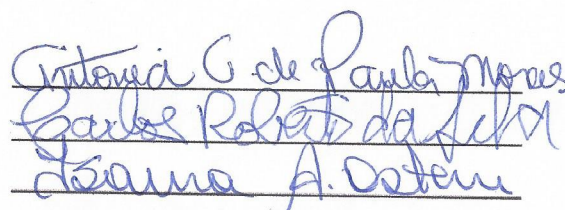 Antonia C. de Paula Moraes
Carlos Roberto da Silva
Joanna A.